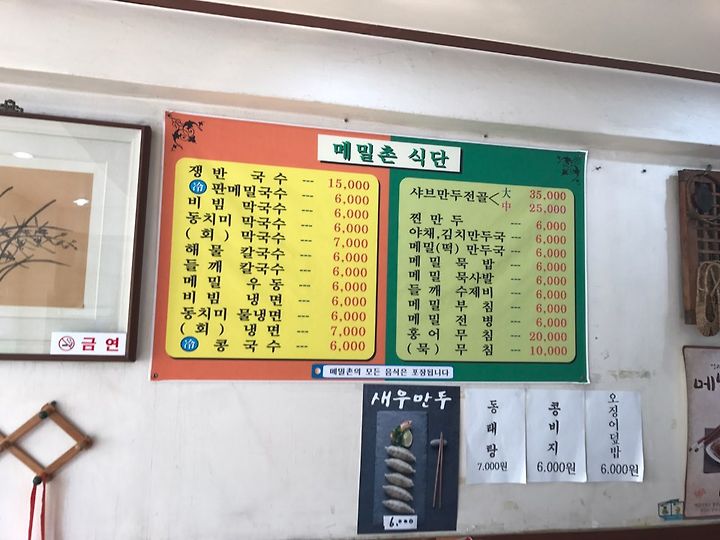 메밀촌 식단
쟁반 국수 --- 15,000
冷 판메밀국수 --- 6,000
비빔 막국수 --- 6,000
동치미 막국수 --- 6,000
(회) 막국수 --- 7,000
해물 칼국수 --- 6,000
들깨 칼국수 --- 6,000
메밀 우동 --- 6,000
비빔 냉면 --- 6,000
동치미 물냉면 --- 6,000
(회) 냉면 --- 7,000
冷 콩국수 --- 6,000
샤브만두전골< 大 35,000
中 25,000
찐만두 --- 6,000
야채,김치만두국 --- 6,000
메밀(떡)만두국 --- 6,000
메밀 묵밥 --- 6,000
메밀 묵사발 --- 6,000
들깨 수제비 --- 6,000
메밀 부침 --- 6,000
메밀 전병 --- 6,000
홍어 무침 --- 20,000
(묵) 무침 --- 10,000
메밀촌의 모든 음식은 포장됩니다
금연
새우만두
6,000
동태탕
7,000원
콩비지
6,000원
오징어덮밥
6,000원